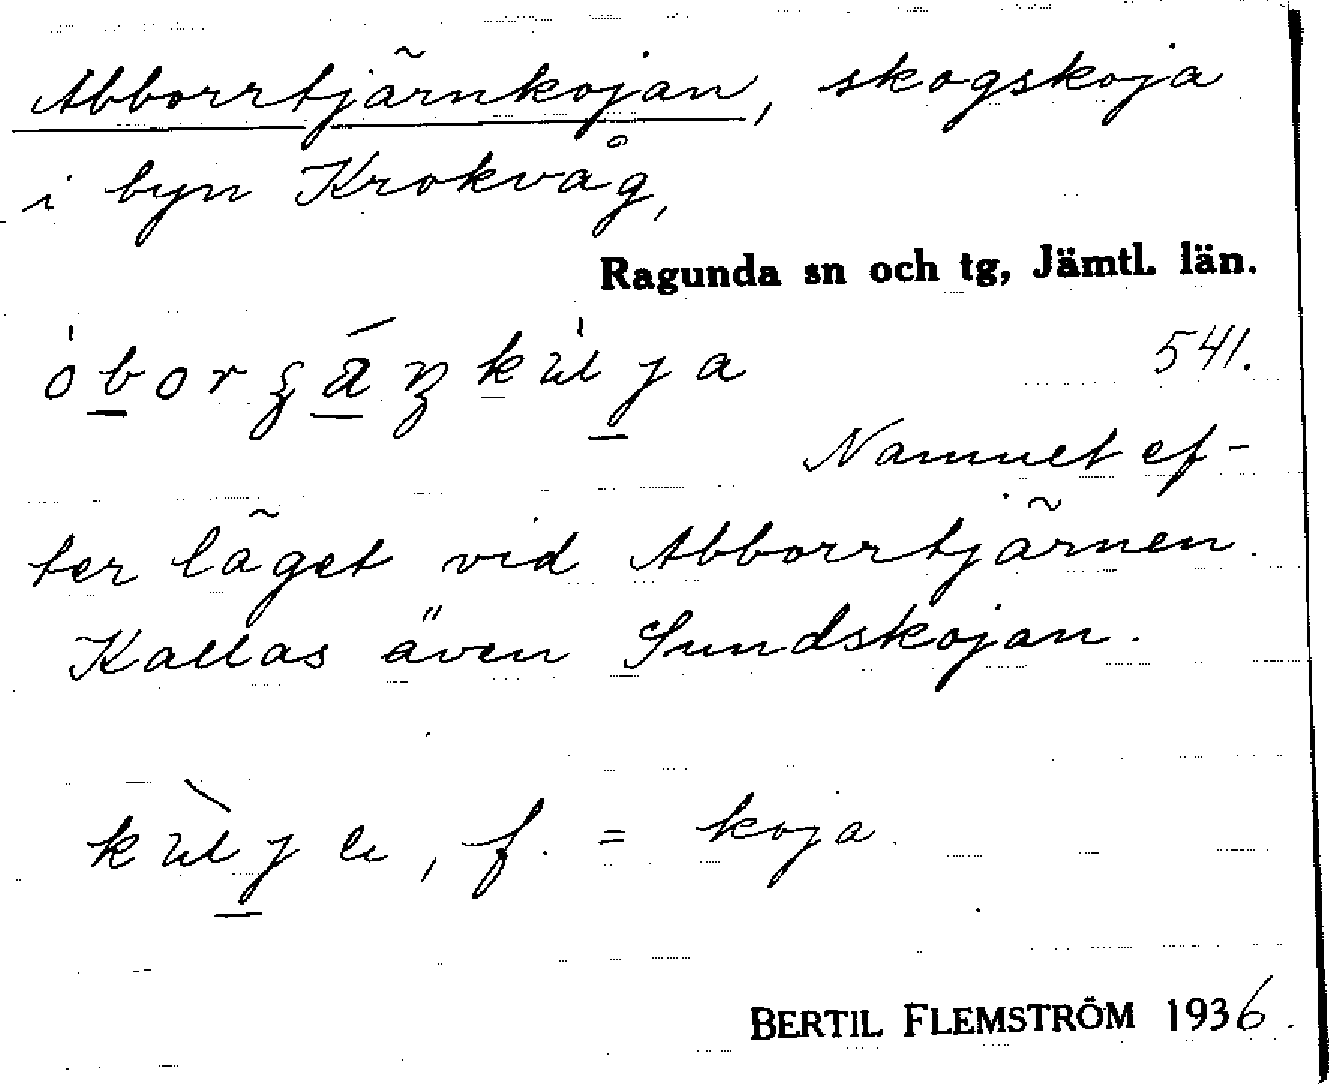 Abborrtjärnkojan, skogskoja
i byn Krokvåg,
Ragunda sn och tg, Jämtl. län.
541.
Namnet ef-
ter läget vid Abborrtjärnen.
Kallas även Sundskojan.
f. = koja.
BERTIL FLEMSTRÖM 1936.